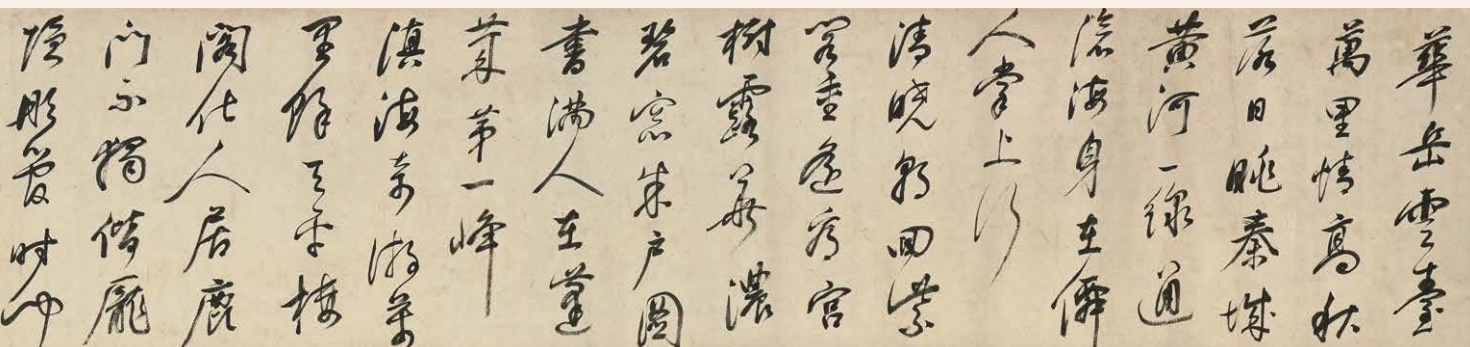 華岳雲臺
萬里情高秋
落日眺秦城
黃河一線通
滄海身在僊
人掌上行
清曉朝回紫
閣重遙看宮
樹露華濃
碧窓朱戶圖
書滿人在蓬
萊第一峰
滇海奇游萬
里餘天平樓
閣仕人居鹿
門不獨偕龐
隱彤管時聞